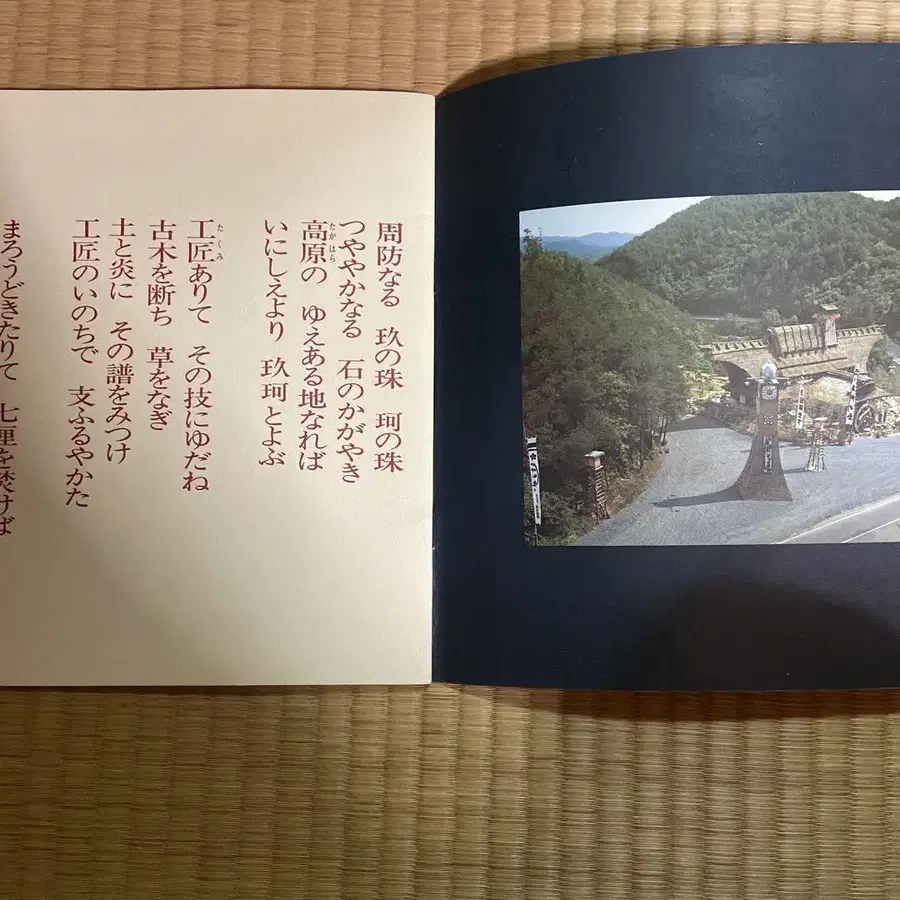 周防なる　玖の珠　珂の珠
つややかなる　石のかがやき
高原の　ゆえある地なれば
いにしえより　玖珂とよぶ
工匠ありて　その技にゆだね
古木を断ち　草をなぎ
土と炎に　その譜をみつけ
工匠のいのちで　支ふるやかた
まろうどきたりて　七里を